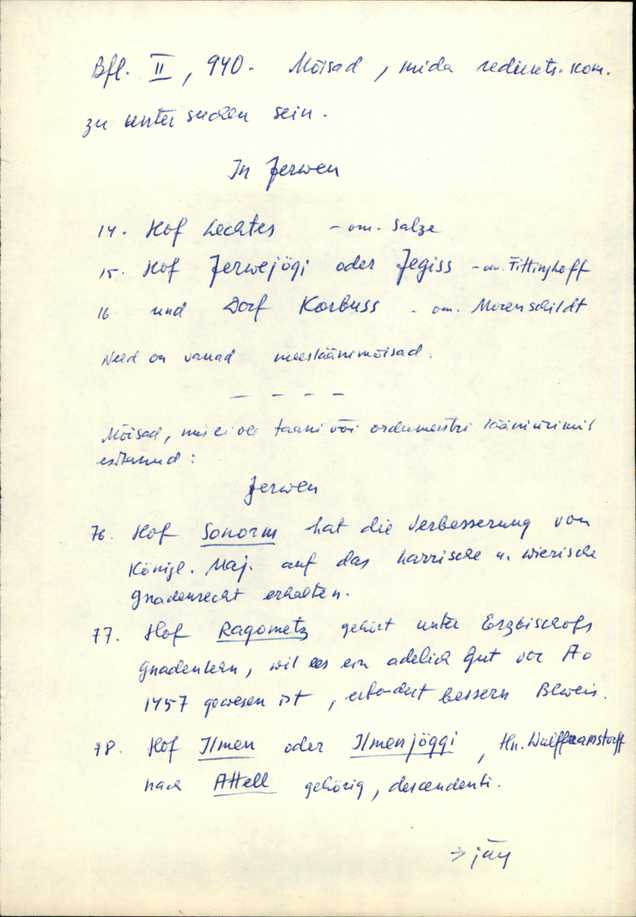 Bfl. II, 940. Mõisad, mida redukts. kom.
zu untersuchen sein.
In Jerwen
14. Hof Lechtes - om. Salze
15. Hof Jerwejögi oder Jegiss - om. Fittinghoff
16 und Dorf Korbuss - om. Morenschildt
Need on vanad meesläänimõisad.
- - - -
Mõisad, mis ei ole taani või ordumeistri
esitanud:
Jerwen
76. Hof Sonorm hat die Verbesserung von
Königl. Maj. auf das harrische u. wierische
Gnadenrecht erhalten.
77. Hof Ragometz gehört unter Erzbischofs
Gnadenlehn, wil es ein adelich Gut vor Ao
1457 gewesen ist, erfordert bessern Beweis.
78. Hof Ilmen oder Ilmenjöggi, Hn. Wulfframstorff
nach Attell gehörig, descendenti.
→ järg